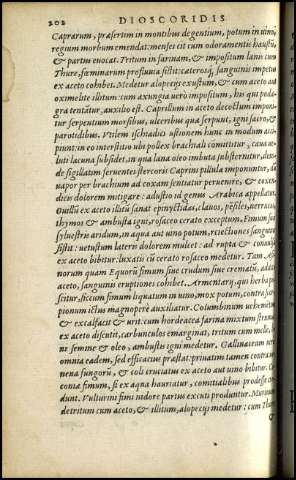 202 DIOSCORIDIS
Caprarum, præsertim in montibus degentium, potum in uino,
regium morbum emendat: menses cit cum odoramentis haustū,
& partus euocat. Tritum in farinam, & impositum lanæ cum
Thure, fœminarum profluuia sistit: cæteros, sanguinis impetus
ex aceto cohibet. Medetur alopecijs exustum, & cum aceto aut
oximelite illitum: cum axungia uerò impositum, his qui podagra
gra tentātur, auxilio est. Caprillum in aceto decoctum imponi-
tur serpentium morsibus, ulceribus quæ serpunt, igni sacro, &
parotidibus. Vtilem ischiadicis ustionem hunc in modum acci-
piunt: in eo interstitio ubi pollex brachiali committitur, caua ue-
luti lacuna subsidet, in qua lana oleo imbuta substernitur, dein-
de sigillatim feruentes stercoris Caprini pillulæ imponuntur, dū
uapor per brachium ad coxam sentiatur peruenire, &
dicis dolorem mitigare: adustio id genus Arabica appellatur.
Buillū ex aceto illitū sanat epinyctidas, clauos, pensiles, uerrucas,
thymos & ambusta igni, rosaceo cerato exceptum. Fimum sui
syluestris aridum, in aqua aut uino potum, reiectiones sanguinis
sistit: uetustum lateris dolorem mulcet: ad rupta & conuulsa
ex aceto bibitur: luxatis cū cerato rosaceo medetur. Tam Asi-
norum quàm Equorū fimum siue crudum siue crematū, addito
aceto, sanguinis eruptiones cohibet. Armentarij, qui herba pa-
scitur, siccum fimum liquatum in uino, mox potum, contra scor-
pionum ictus magnopere auxiliatur. Columbinum uehementius
& excalfacit & urit. cum hordeacea farina mixtum strumas
ex aceto discutit, carbunculos emarginat, tritum cum melle, li-
ni semine & oleo, ambustis igni medetur. Gallinaceum
omnia eadem, sed efficacius præstat: priuatim tamen contra ue-
nena fungorū, & coli cruciatus ex aceto aut uino bibitur. Ci-
coniæ fimum, si ex aqua hauriatur, comitialibus prodesse cre-
dunt. Vulturini fimi nidore partus excuti produntur. Murinum
detritum cum aceto, & illitum, alopecijs medetur: cum Thure